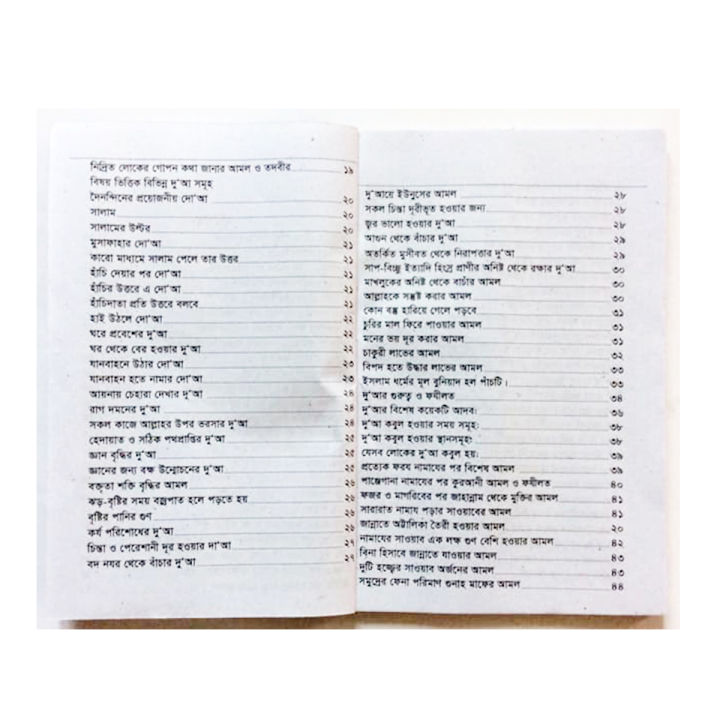 নিদ্রিত লোকের গোপন কথা জানার আমল ও তদবীর ১৯
বিষয় ভিত্তিক বিভিন্ন দু'আ সমূহ
দৈনন্দিনের প্রয়োজনীয় দো'আ ২০
সালাম ২০
সালামের উল্টর ২০
মুসাফাহার দো'আ ২১
কারো মাধ্যমে সালাম পেলে তার উত্তর ২১
হাঁচি দেয়ার পর দো'আ ২১
হাঁচির উত্তরে এ দো'আ ২১
হাঁচিদাতা প্রতি উত্তরে বলবে ২১
হাই উঠলে দো'আ ২২
ঘরে প্রবেশের দু'আ ২২
ঘর থেকে বের হওয়ার দু'আ ২২
যানবাহনে উঠার দো'আ ২৩
যানবাহন হতে নামার দো'আ ২৩
আয়নায় চেহারা দেখার দু'আ ২৪
রাগ দমনের দু'আ ২৪
সকল কাজে আল্লাহর উপর ভরসার দু'আ ২৪
হেদায়াত ও সঠিক পথপ্রাপ্তির দু'আ ২৫
জ্ঞান বৃদ্ধির দু'আ ২৫
জ্ঞানের জন্য বক্ষ উন্মোচনের দু'আ ২৫
বক্তৃতা শক্তি বৃদ্ধির আমল ২৬
ঝড়-বৃষ্টির সময় বজ্রপাত হলে পড়তে হয় ২৬
বৃষ্টির পানির গুণ ২৬
কর্য পরিশোধের দু'আ ২৬
চিন্তা ও পেরেশানী দূর হওয়ার দা'আ ২৭
বদ নযর থেকে বাঁচার দু'আ ২৭
দু'আয়ে ইউনুসের আমল ২৮
সকল চিন্তা দূরীভূত হওয়ার জন্য ২৮
জ্বর ভালো হওয়ার দু'আ ২৮
আগুন থেকে বাঁচার দু'আ ২৯
অতর্কিত মুসীবত থেকে নিরাপত্তার দু'আ ২৯
সাপ-বিচ্ছু ইত্যাদি হিংস্র প্রাণীর অনিষ্ট থেকে রক্ষার দু'আ ৩০
মাখলুকের অনিষ্ট থেকে বাচাঁর আমল ৩০
আল্লাহকে সন্তুষ্ট করার আমল ৩০
কোন বস্তু হারিয়ে গেলে পড়বে ৩১
চুরির মাল ফিরে পাওয়ার আমল ৩১
মনের ভয় দূর করার আমল ৩১
চাকুরী লাভের আমল ৩২
বিপদ হতে উদ্ধার লাভের আমল ৩৩
ইসলাম ধর্মের মূল বুনিয়াদ হল পাঁচটি। ৩৩
দু'আর গুরুত্ব ও ফযীলত ৩৪
দু'আর বিশেষ কয়েকটি আদব: ৩৬
দু'আ কবুল হওয়ার সময় সমূহ: ৩৮
দু'আ কবুল হওয়ার স্থানসমূহ: ৩৮
যেসব লোকের দু'আ কবুল হয়: ৩৯
প্রত্যেক ফরয নামাযের পর বিশেষ আমল ৩৯
পাঞ্জেগানা নামাযের পর কুরআনী আমল ও ফযীলত ৪০
ফজর ও মাগরিবের পর জাহান্নাম থেকে মুক্তির আমল ৪১
সারারাত নামায পড়ার সাওয়াবের আমল ৪১
জান্নাতে অট্টালিকা তৈরী হওয়ার আমল ২০
নামাযের সাওয়াব এক লক্ষ গুণ বেশি হওয়ার আমল ৪২
বিনা হিসাবে জান্নাতে যাওয়ার আমল ৪৩
দুটি হজ্জের সাওয়াব অর্জনের আমল ৪৩
সমুদ্রের ফেনা পরিমাণ গুনাহ মাফের আমল ৪৪